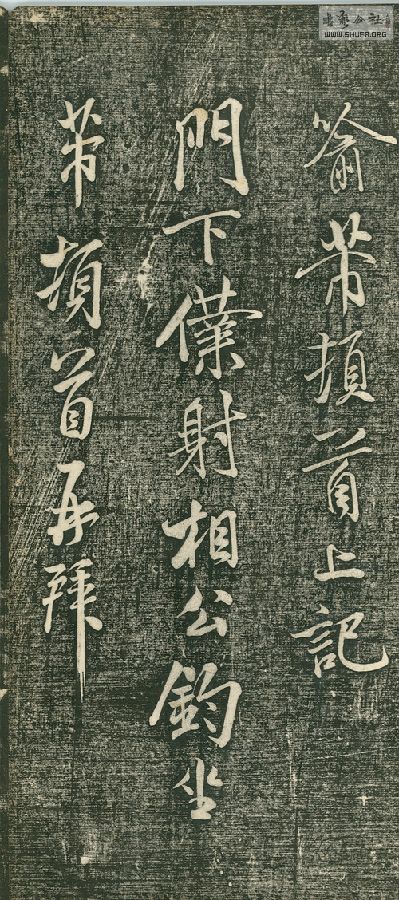 書藝公社
WWW.SHUFA.ORG
喻芾頓首上記
門下僕射相公鈞坐
芾頓首再拜